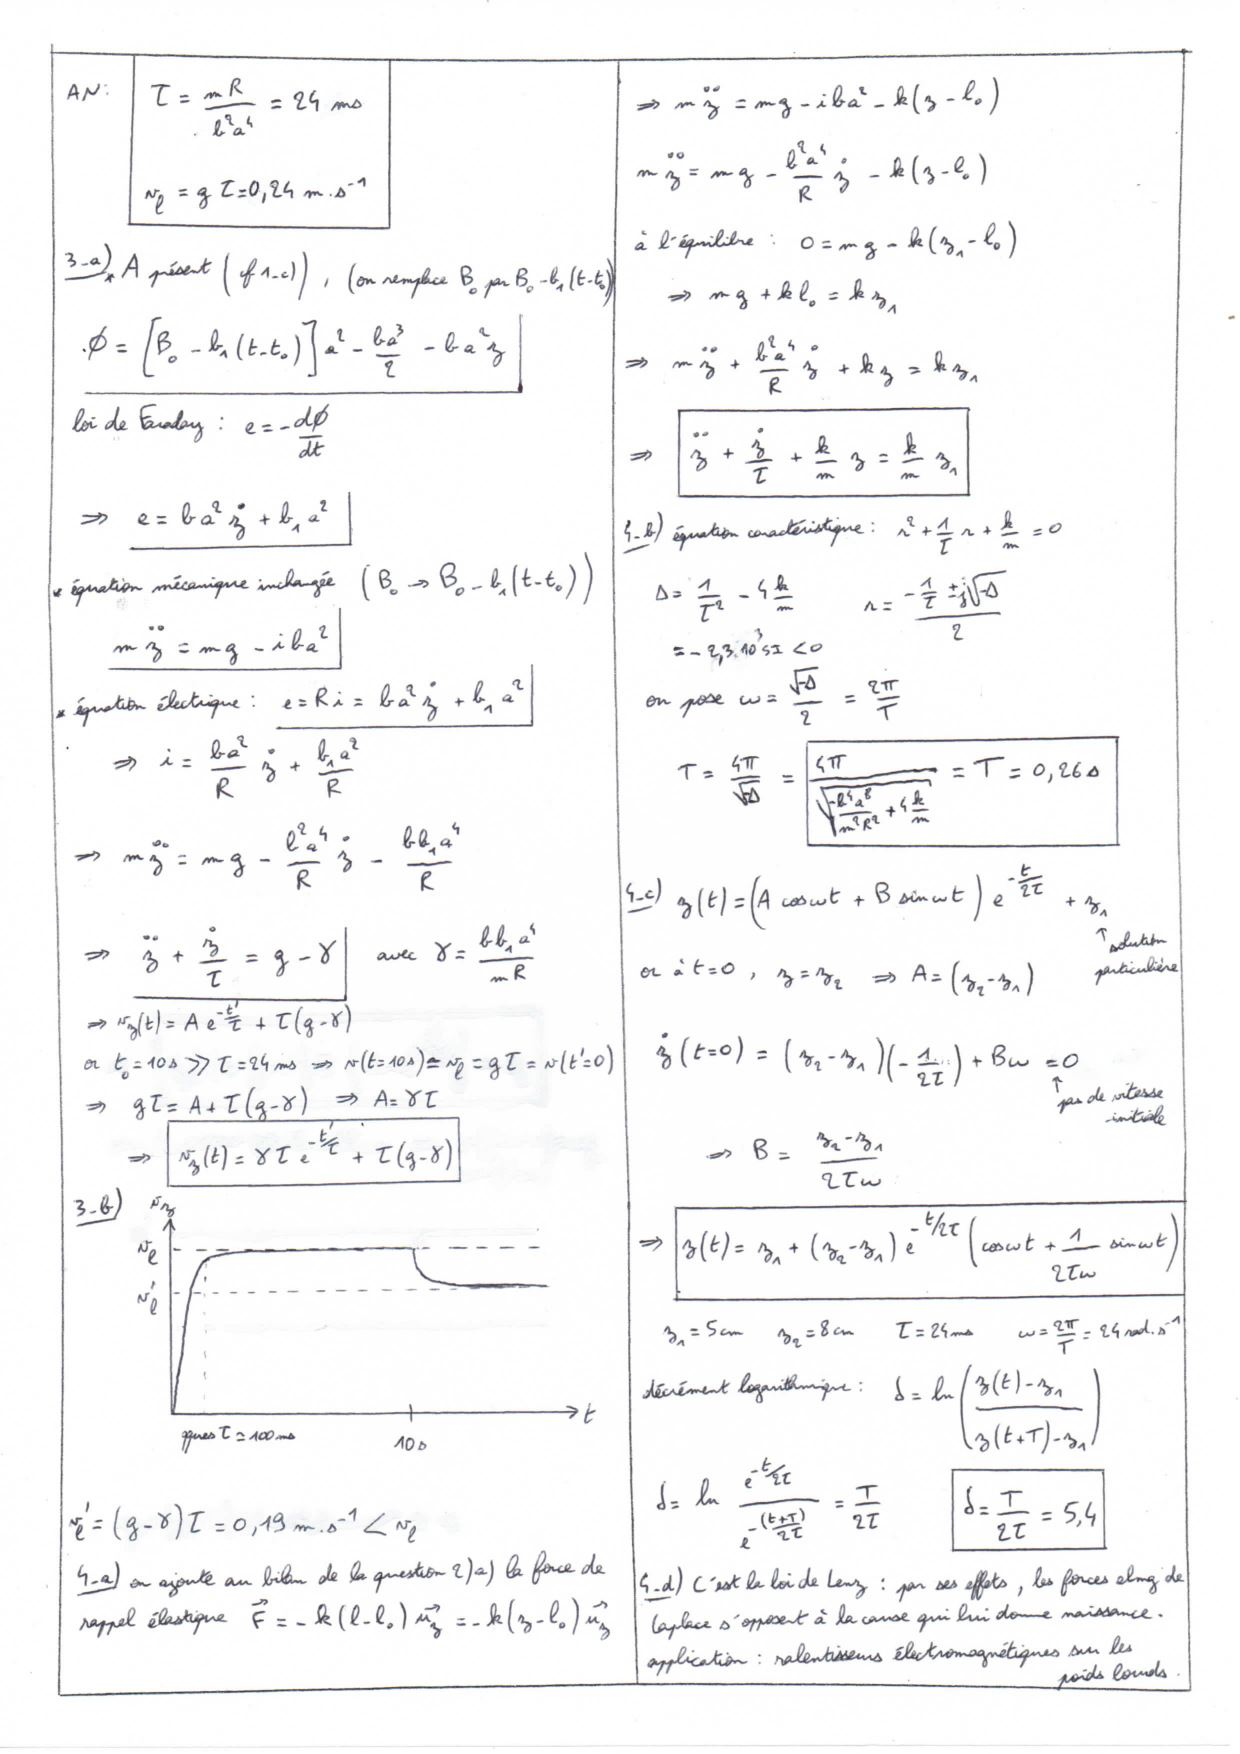 AN: τ = mR / b²a⁴ = 24 ms
v_l = g τ = 0,24 m.s⁻¹
3-a) * A présent (cf 1-c)), (on remplace B₀ par B₀ - b₁(t-t₀))
Φ = [B₀ - b₁(t-t₀)] a² - ba³/2 - ba²z
loi de Faraday : e = - dΦ/dt
⇒ e = ba²ż + b₁a²
* équation mécanique inchangée (B₀ → B₀ - b₁(t-t₀))
m z̈ = mg - iba²
* équation électrique : e = Ri = ba²ż + b₁a²
⇒ i = ba²/R ż + b₁a²/R
⇒ m z̈ = mg - b²a⁴/R ż - bb₁a⁴/R
⇒ z̈ + ż/τ = g - γ avec γ = bb₁a⁴/mR
⇒ v_z(t) = A e^(-t'/τ) + τ(g-γ)
or t₀ = 10s >> τ = 24 ms ⇒ v(t=10s) ≃ v_l = gτ = v(t'=0)
⇒ gτ = A + τ(g-γ) ⇒ A = γτ
⇒ v_z(t) = γτ e^(-t'/τ) + τ(g-γ)
3-b) v_z
v_l
v'_l
t
qques τ ≃ 100 ms
10 s
v'_l = (g-γ)τ = 0,19 m.s⁻¹ < v_l
4-a) on ajoute au bilan de la question 2)a) la force de
rappel élastique F⃗ = -k(l-l₀) u⃗_z = -k(z-l₀) u⃗_z
⇒ m z̈ = mg - iba² - k(z-l₀)
m z̈ = mg - b²a⁴/R ż - k(z-l₀)
à l'équilibre : 0 = mg - k(z₁-l₀)
⇒ mg + kl₀ = kz₁
⇒ m z̈ + b²a⁴/R ż + kz = kz₁
⇒ z̈ + ż/τ + k/m z = k/m z₁
4-b) équation caractéristique : r² + 1/τ r + k/m = 0
Δ = 1/τ² - 4 k/m r = (-1/τ ± j√-Δ)/2
= - 2,3.10³ SI < 0
on pose ω = √-Δ/2 = 2π/T
T = 4π/√-Δ = 4π/√(-b⁴a⁸/m²R² + 4 k/m) = T = 0,26 s
4-c) z(t) = (A cos ωt + B sin ωt) e^(-t/2τ) + z₁
↑ solution
particulière
or à t=0, z = z₂ ⇒ A = (z₂-z₁)
ż(t=0) = (z₂-z₁)(-1/2τ) + Bω = 0
↑
pas de vitesse
initiale
⇒ B = (z₂-z₁)/2τω
⇒ z(t) = z₁ + (z₂-z₁) e^(-t/2τ) (cos ωt + 1/2τω sin ωt)
z₁ = 5 cm z₂ = 8 cm τ = 24 ms ω = 2π/T = 24 rad.s⁻¹
décrément logarithmique : δ = ln((z(t)-z₁)/(z(t+T)-z₁))
δ = ln e^(-t/2τ)/e^(-(t+T)/2τ) = T/2τ
δ = T/2τ = 5,4
4-d) C'est la loi de Lenz : par ses effets, les forces elmg de
Laplace s'opposent à la cause qui lui donne naissance.
application : ralentisseurs électromagnétiques sur les
poids lourds.